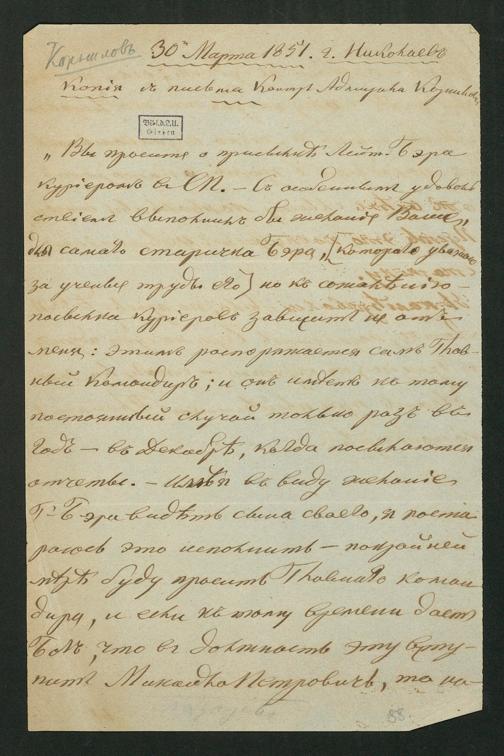 Корниловъ
30го Марта 1851. г. Николаевъ
Копія съ письма Контръ Адмирала Корнилова,
„Вы просите о присылкѣ Лейт. Бэра
курьеромъ въ СП. — Съ особеннымъ удоволь
ствіемъ выполнилъ бы желаніе Ваше,
для самаго старичка Бэра, [котораго уважаю
за ученые труды его] но къ сожалѣнію —
посылка курьеровъ зависитъ не отъ
меня: этимъ распоряжается самъ Глав-
ный Командиръ; и онъ имѣетъ къ тому
постоянный случай только разъ въ
годъ — въ Декабрѣ, когда посылаются
отчеты. — Имѣя въ виду желаніе
Г. Бэра видѣть сына своего, я поста
раюсь это исполнить — покрайней
мѣрѣ буду просить Главнаго коман
дира, и если къ тому времени дастъ
Богъ, что въ должность эту всту-
питъ Михайло Петровичъ, то на-
88.